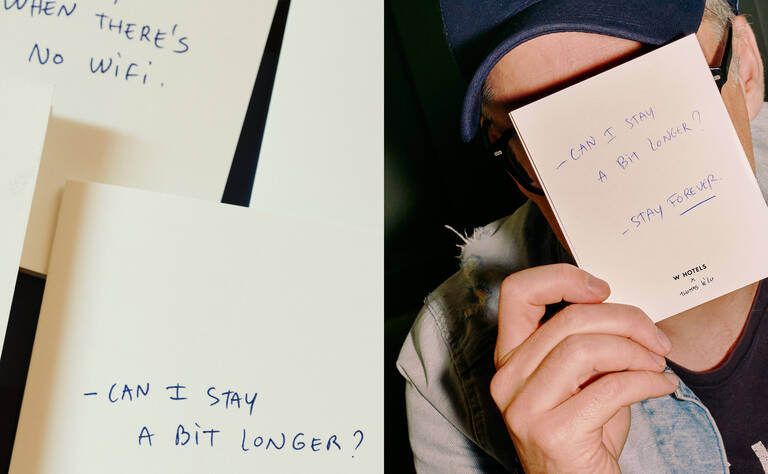 WHEN THERE'S
NO WiFi.
- CAN I STAY
A BIT LONGER?
- CAN I STAY
A BIT LONGER?
- STAY FOREVER.
W HOTELS
x